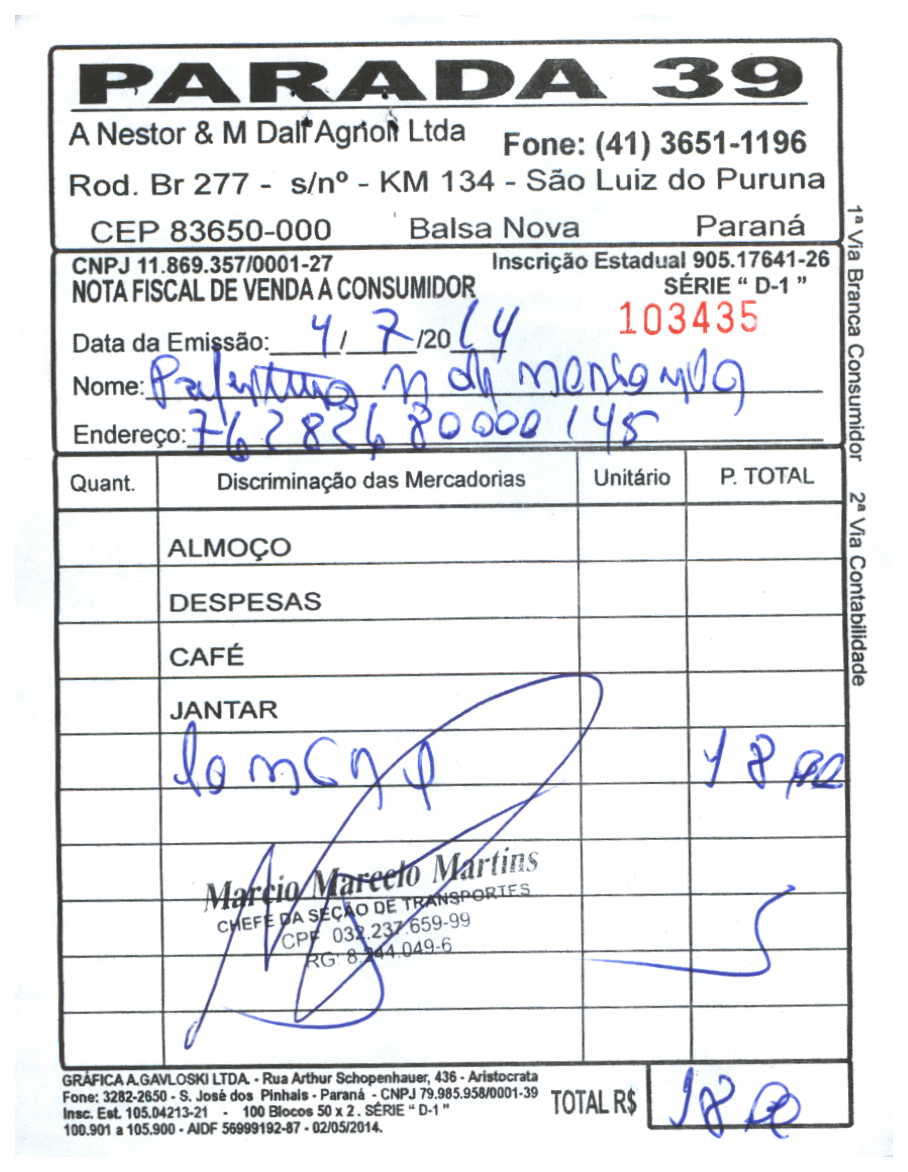 PARADA 39
A Nestor & M Dall'Agnoll Ltda Fone: (41) 3651-1196
Rod. Br 277 - s/nº - KM 134 - São Luiz do Puruna
CEP 83650-000 Balsa Nova Paraná
CNPJ 11.869.357/0001-27 Inscrição Estadual 905.17641-26
NOTA FISCAL DE VENDA A CONSUMIDOR SÉRIE " D-1 "
103435
Data da Emissão: 4 / 7 /20 14
Nome:
Endereço: 76282680000145
Quant. Discriminação das Mercadorias Unitário P. TOTAL
ALMOÇO
DESPESAS
CAFÉ
JANTAR
18 00
Marcio Marcelo Martins
CHEFE DA SEÇÃO DE TRANSPORTES
CPF 032.237.659-99
RG: 8.244.049-6
GRÁFICA A.GAVLOSKI LTDA. - Rua Arthur Schopenhauer, 436 - Aristocrata
Fone: 3282-2650 - S. José dos Pinhais - Paraná - CNPJ 79.985.958/0001-39
Insc. Est. 105.04213-21 - 100 Blocos 50 x 2 . SÉRIE " D-1 "
100.901 a 105.900 - AIDF 56999192-87 - 02/05/2014.
TOTAL R$ 18 00
1ª Via Branca Consumidor 2ª Via Contabilidade